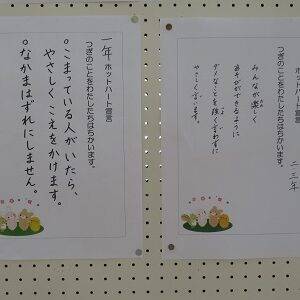 一年 ホットハート宣言
つぎのことをわたしたちはちかいます。
○こまっている人がいたら、
やさしくこえをかけます。
○なかまはずれにしません。
ホットハート宣言
つぎのことをわたしたちはちかいます。
二三年
みんなが楽しく
あそびができるように
ダメなことを強く言わずに
やさしく言います。